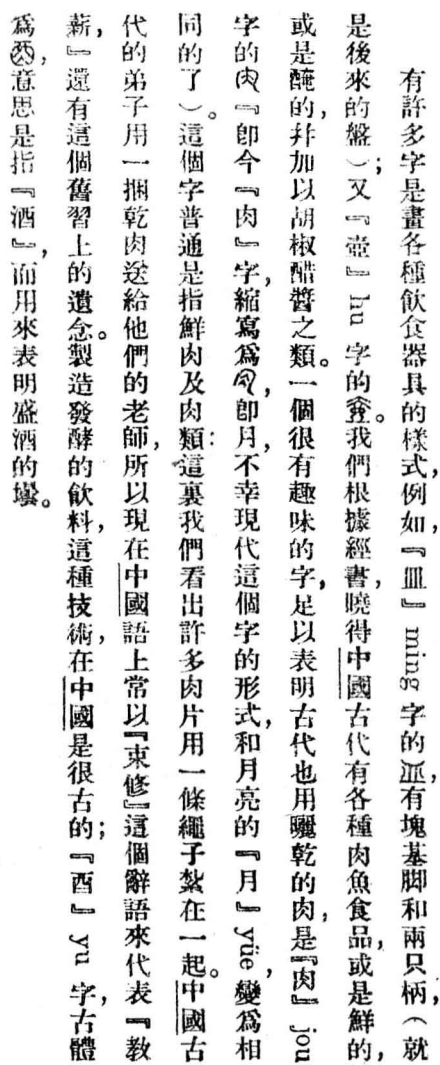 有許多字是畫各種飮食器具的樣式，例如，『皿』ming 字的，有塊基脚和兩只柄，（就
是後來的盤）；又『壺』hu 字的。我們根據經書，曉得中國古代有各種肉魚食品，或是鮮的，
或是醃的，幷加以胡椒醋醬之類。一個很有趣味的字，足以表明古代也用曬乾的肉，是『肉』jou
字的『卽今『肉』字，縮寫爲，卽月，不幸現代這個字的形式，和月亮的『月』yüe，變爲相
同的了）。這個字普通是指鮮肉及肉類：這裏我們看出許多肉片用一條繩子紮在一起。中國古
代的弟子用一捆乾肉送給他們的老師，所以現在中國語上常以『束修』這個辭語來代表『教
薪，』還有這個舊習上的遺念。製造發酵的飮料，這種技術，在中國是很古的；『酉』yu 字，古體
爲，意思是指『酒』，而用來表明盛酒的罎。